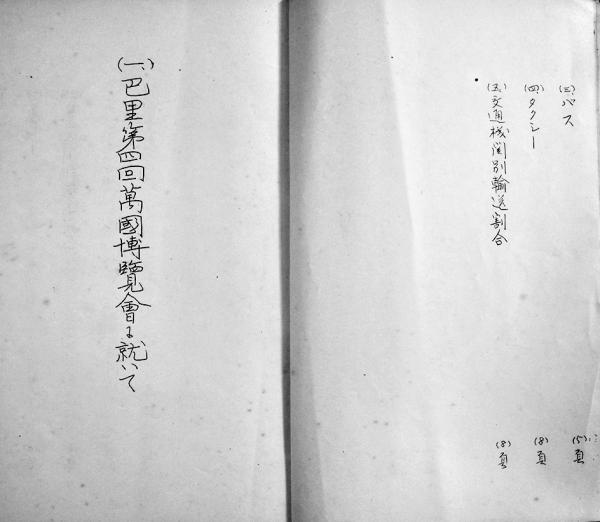 (三、)バス (5)頁
(四、)タクシー (8)頁
(五、)交通機関別輸送割合 (8)頁
(一、)巴里第四回萬國博覽會に就いて